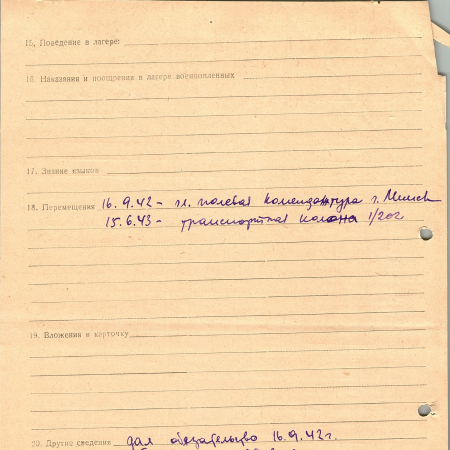 15. Поведение в лагере:
16. Наказания и поощрения в лагере военнопленных
17. Знание языков
18. Перемещения 16.9.42 – гл. полевая комендатура г. Минск
15.6.43 – транспортная колона 1/202
19. Вложения в карточку
20. Другие сведения дал обязательство 16.9.42 г.